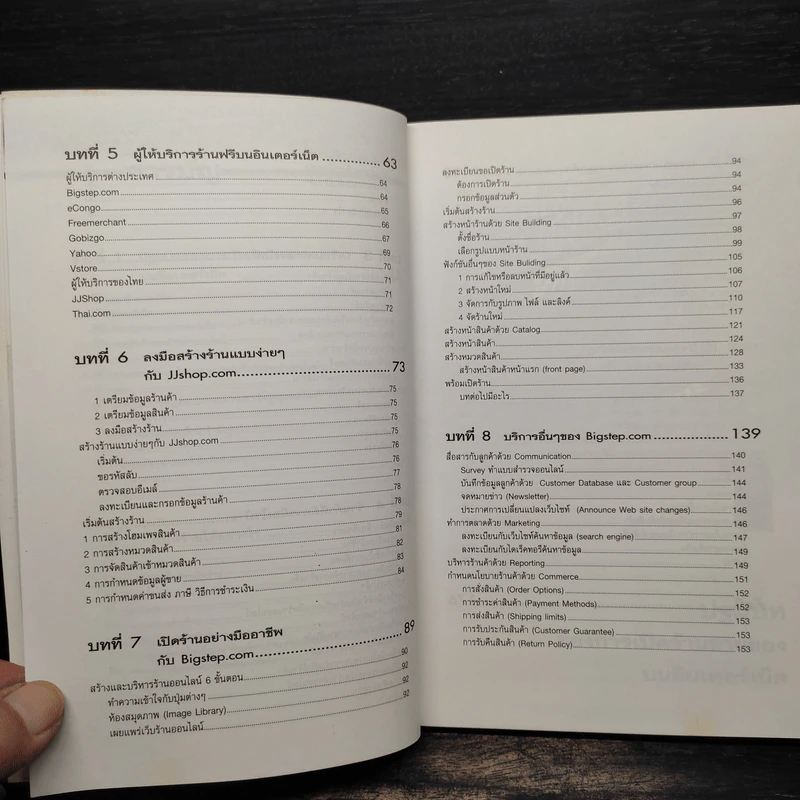 บทที่ 5 ผู้ให้บริการร้านฟรีบนอินเตอร์เน็ต 63
ผู้ให้บริการต่างประเทศ 64
Bigstep.com 64
eCongo 65
Freemerchant 66
Gobizgo 67
Yahoo 69
Vstore 70
ผู้ให้บริการของไทย 71
JJShop 71
Thai.com 72
บทที่ 6 ลงมือสร้างร้านแบบง่ายๆ
กับ JJshop.com 73
1 เตรียมข้อมูลร้านค้า 75
2 เตรียมข้อมูลสินค้า 75
3 ลงมือสร้างร้าน 75
สร้างร้านแบบง่ายๆกับ JJshop.com 75
เริ่มต้น 76
ขอรหัสลับ 76
ตรวจสอบอีเมล์ 77
ลงทะเบียนและกรอกข้อมูลร้านค้า 78
เริ่มต้นสร้างร้าน 78
1 การสร้างโฮมเพจสินค้า 79
2 การสร้างหมวดสินค้า 81
3 การจัดสินค้าเข้าหมวดสินค้า 82
4 การกำหนดข้อมูลผู้ขาย 83
5 การกำหนดค่าขนส่ง ภาษี วิธีการชำระเงิน 84
บทที่ 7 เปิดร้านอย่างมืออาชีพ
กับ Bigstep.com 89
สร้างและบริหารร้านออนไลน์ 6 ขั้นตอน 90
ทำความเข้าใจกับปุ่มต่างๆ 92
ห้องสมุดภาพ (Image Library) 92
เผยแพร่เว็บร้านออนไลน์ 92
ลงทะเบียนขอเปิดร้าน 94
ต้องการเปิดร้าน 94
กรอกข้อมูลส่วนตัว 94
เริ่มต้นสร้างร้าน 96
สร้างหน้าร้านด้วย Site Building 97
ตั้งชื่อร้าน 98
เลือกรูปแบบหน้าร้าน 99
ฟังก์ชันอื่นๆของ Site Buliding 105
1 การแก้ไขหรือลบหน้าที่มีอยู่แล้ว 106
2 สร้างหน้าใหม่ 107
3 จัดการกับรูปภาพ ไฟล์ และลิงค์ 110
4 จัดร้านใหม่ 117
สร้างหน้าสินค้าด้วย Catalog 121
สร้างหน้าสินค้า 124
สร้างหมวดสินค้า 128
สร้างหน้าสินค้าหน้าแรก (front page) 133
พร้อมเปิดร้าน 136
บทต่อไปมีอะไร 137
บทที่ 8 บริการอื่นๆของ Bigstep.com 139
สื่อสารกับลูกค้าด้วย Communication 140
Survey ทำแบบสำรวจออนไลน์ 141
บันทึกข้อมูลลูกค้าด้วย Customer Database และ Customer group 144
จดหมายข่าว (Newsletter) 144
ประกาศการเปลี่ยนแปลงเว็บไซท์ (Announce Web site changes) 146
ทำการตลาดด้วย Marketing 146
ลงทะเบียนกับเว็บไซท์ค้นหาข้อมูล (search engine) 147
ลงทะเบียนกับไดเร็คทอรีค้นหาข้อมูล 149
บริหารร้านค้าด้วย Reporting 149
กำหนดนโยบายร้านค้าด้วย Commerce 151
การสั่งสินค้า (Order Options) 152
การชำระค่าสินค้า (Payment Methods) 152
การส่งสินค้า (Shipping limits) 153
การรับประกันสินค้า (Customer Guarantee) 153
การรับคืนสินค้า (Return Policy) 153